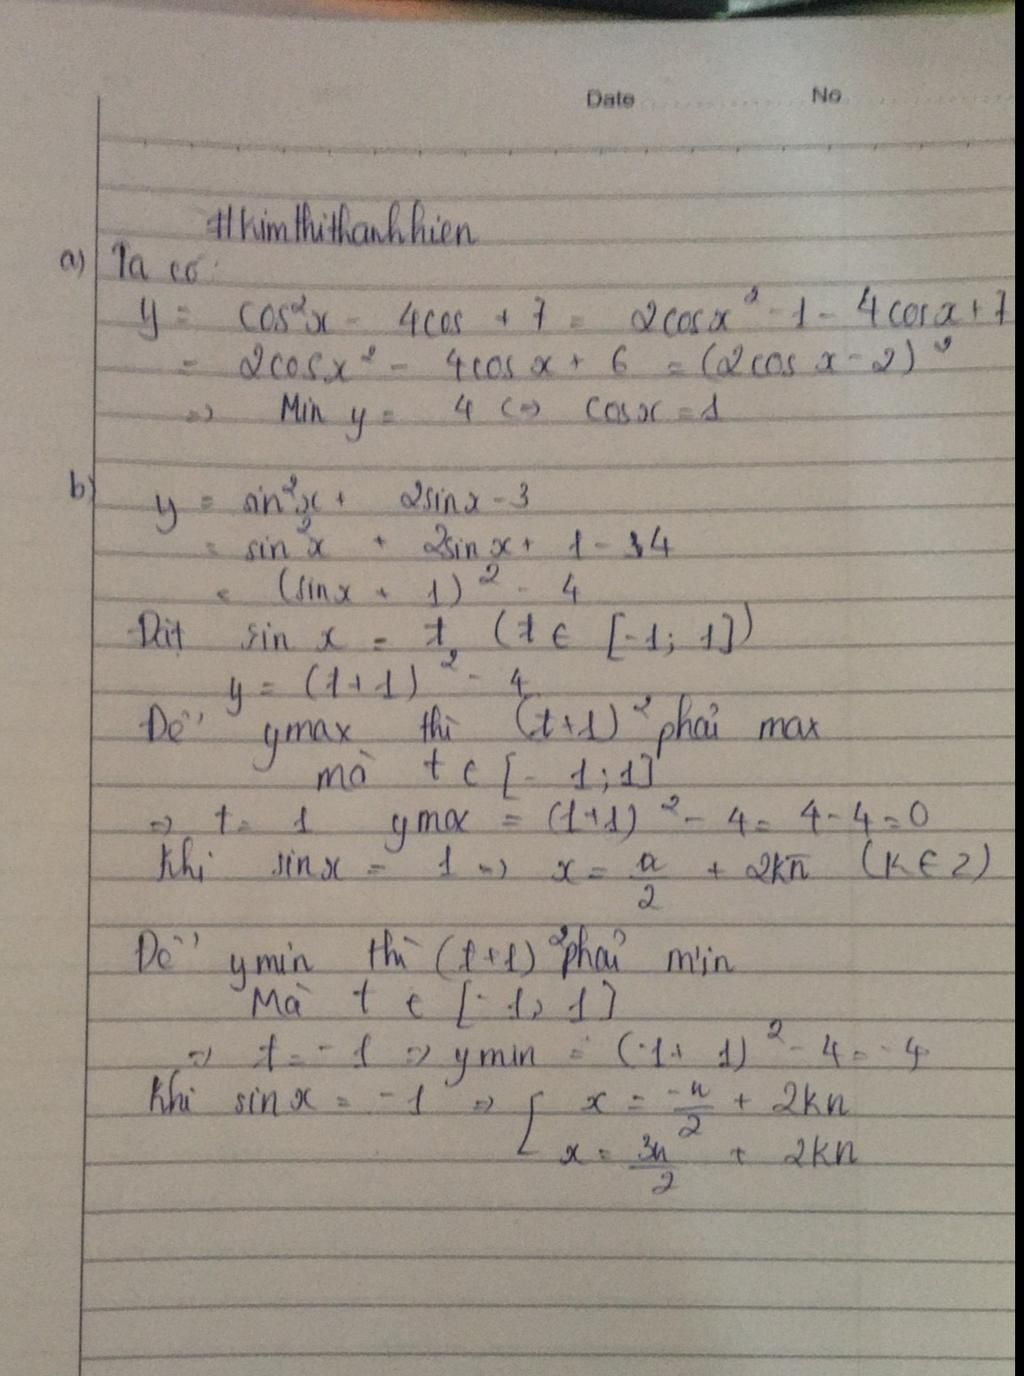 Date No
#Kimthithanhhien
a) Ta có:
y = cos²x - 4cos + 7 = 2cosx² - 1 - 4cosx + 7
= 2cosx² - 4cosx + 6 = (2cos x - 2)²
=> Min y = 4 <=> cosx = 1
b) y = sin²x + 2sinx - 3
= sin²x + 2sinx + 1 - 4
= (sinx + 1)² - 4
Đặt sin x = t, (t ∈ [-1; 1])
y = (t+1)² - 4
Để ymax thì (t+1)² phải max
mà t ∈ [-1; 1]
=> t = 1 ymax = (1+1)² - 4 = 4 - 4 = 0
Khi sinx = 1 => x = π/2 + 2kπ (k ∈ Z)
Để ymin thì (t+1)² phải min
Mà t ∈ [-1; 1]
=> t = -1 => ymin = (-1+1)² - 4 = -4
Khi sinx = -1 => [ x = -π/2 + 2kπ
x = 3π/2 + 2kπ